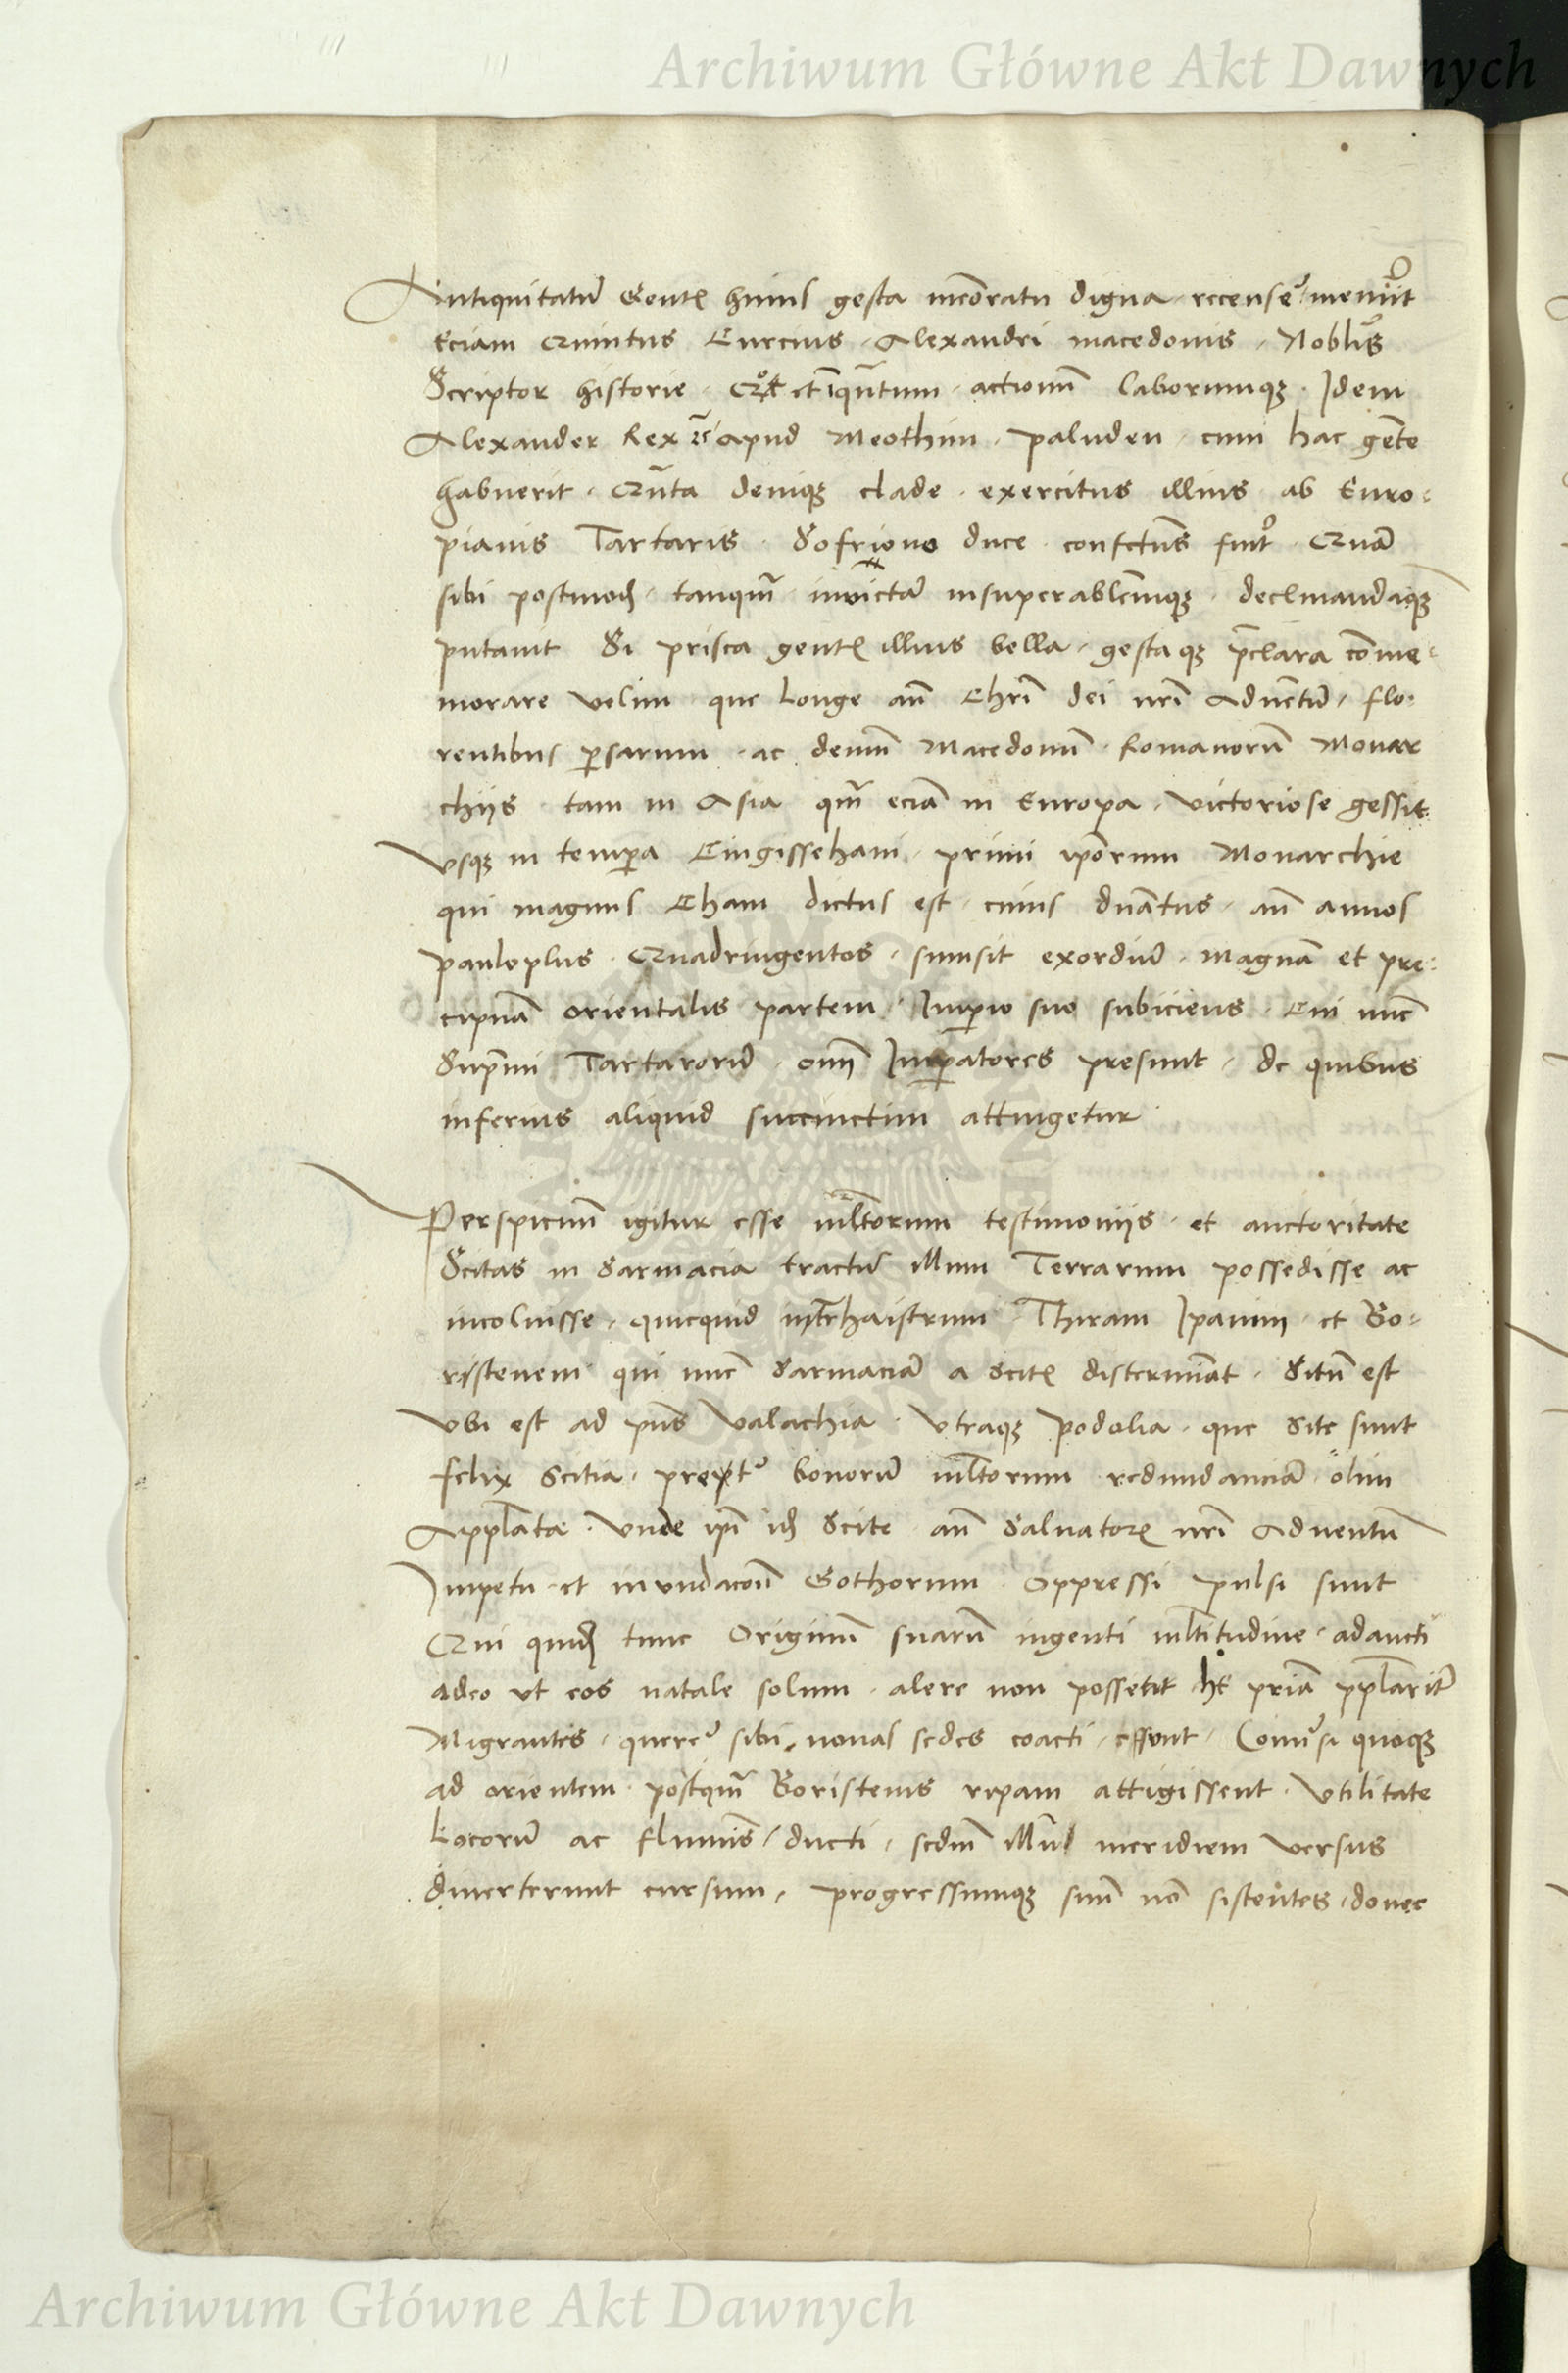 Archiwum Główne Akt Dawnych
Antiquitatū Gentꝭ huius gesta meōratu digna recense᷒ meminit
Eciam Quintus Curcius Alexandri macedonis Nobłis
Scriptor historie et quātum actionū laborumqꝫ Idem
Alexander Rex apud Meothim paluden cum hac gēte
habuerit Quāta deniqꝫ clade exercitus illius ab Euro:
pianis Tartaris Sofrione duce confctus fuit Quā
sibi postmodꝫ tanqm̄ invictā insuperablēmqꝫ declinandāqꝫ
putauit Si prisca gentꝭ illius bella gestaqꝫ p̄clara cōme:
morare velim que longe an̄ Chrī dei nrī Aduētū flo:
rentibus ꝑsarum ac demū Macedonū Romanorū Monar
chijs tam in Asia qm̄ eciā in Europa victoriose gessit
vsqꝫ in temꝑa Cingisschani primi ipōrum Monarchie
qui magnus Cham dictus est cuius dnātus an̄ annos
pauloplus Quadringentos sumsit exordiū magnā et pre:
cipuā orientalis partem Imꝑio suo subiciens Cui nūc
Sup̄mi Tartarorū om̄ Imꝑatores presunt de quibus
inferius aliquid succinctim attingetur
Perspicuū igitur esse mltorum testimonijs et auctoritate
Scitas in Sarmacia tractū illum Terrarum possedisse ac
incoluisse quicquid int haistrum Thiram Ipanim et Bo:
ristenem qui nūc Sarmaciā a Scitꝭ distermināt Sitū est
vbi est ad pn̄s Valachia vtraqꝫ Podolia que Site sunt
felix Scitia bonorū mltorum redundanciā olim
Appłatae vnde ip̄i idꝫ Scite an̄ Saluatorꝭ nrī Aduentū
Impetu et inundacoīe Gothorum oppressi pulsi sunt
Qui quidꝫ tunc Originū suarū ingenti mltitudine adaucti
adeo vt eos natale solum alere non possetit priā ppłaritꝰ
Migrantes querꝰe sibi nouas sedes coacti essent quoqꝫ
ad orientem postqm̄ Boristenis ripam attigissent vtilitate
Locorū ac fluminis ducti sedm̄ illiud meridiem versus
diuerterunt cursum progressumqꝫ suū nō sistentes donec
Archiwum Główne Akt Dawnych